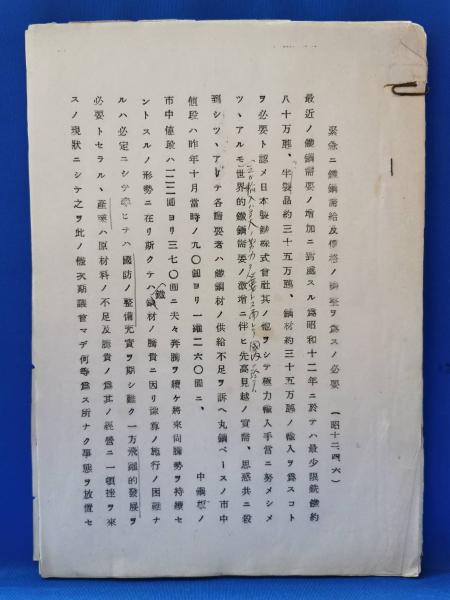 緊急ニ鐵鋼需給及價格ノ調整ヲ爲スノ必要　（昭十二、四、六）
最近ノ鐵鋼需要ノ增加ニ對處スル爲昭和十二年ニ於テハ最少限銑鐵約
八十万瓲、半製品約三十五万瓲、鋼材約三十五万瓲ノ輸入ヲ爲スコト
ヲ必要ト認メ日本製鐵株式會社其ノ他ヲシテ極力輸入手當ニ努メシメ
ツヽアルモ世界的鐵鋼需要ノ激增ニ伴ヒ先高見越ノ實需、思惑共ニ殺
到シツヽアリテ各需要者ハ鐵鋼材ノ供給不足ヲ訴ヘ丸鋼ベースノ市中
値段ハ昨年十月當時ノ九〇圓ヨリ一躍二六〇圓ニ、中鋼板ノ
市中値段ハ一二二圓ヨリ三七〇圓ニ夫々奔騰ヲ續ケ將來尙騰勢ヲ持續セ
ントスルノ形勢ニ在リ斯クテハ鐵鋼材ノ騰貴ニ因リ豫算ノ施行ノ困難ナ
ルハ必定ニシテ延ヒテハ國防ノ整備充實ヲ期シ難ク一方飛躍的發展ヲ
必要トセラルヽ産業ハ原材料ノ不足及騰貴ノ爲其ノ經營ニ一頓挫ヲ來
スノ現狀ニシテ之ヲ此ノ儘次期議會マデ何等爲ス所ナク事態ヲ放置セ